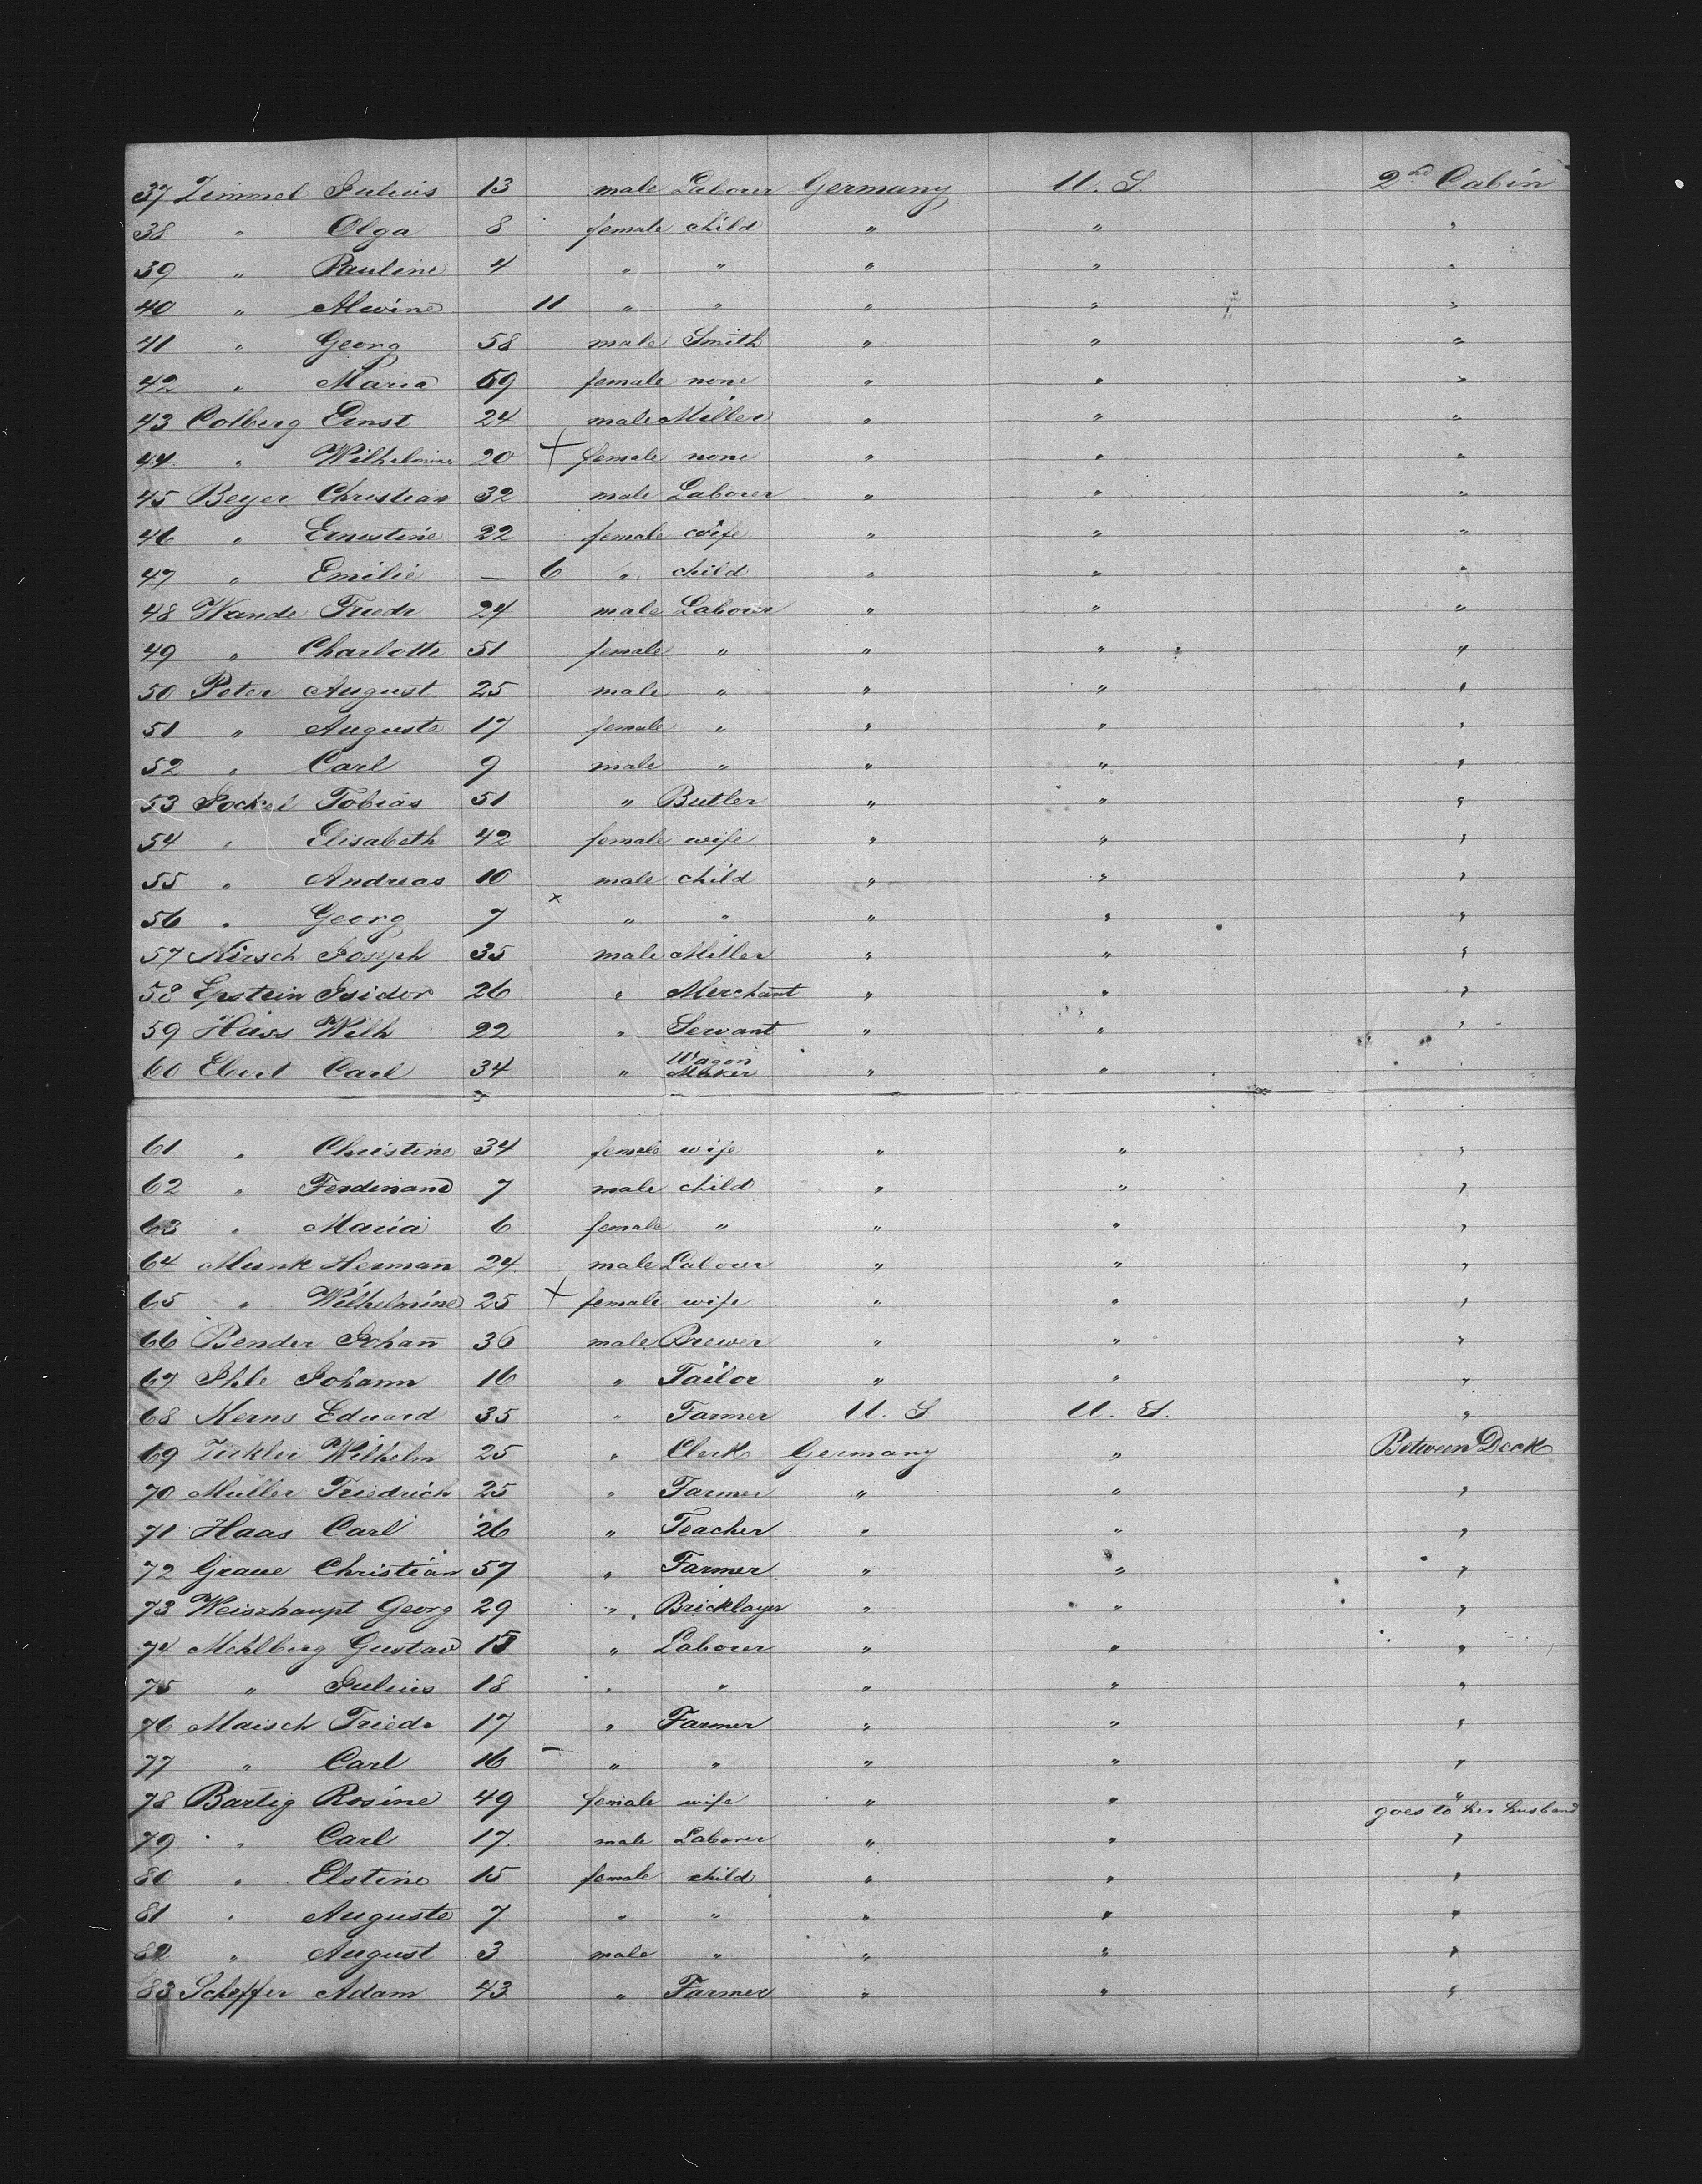 37 Zimmel Julius 13 male Laborer Germany U. S. 2nd Cabin
38 " Olga 8 female child " " "
39 " Pauline 4 " " " " "
40 " Alwine 11 " " " " "
41 " Georg 58 male Smith " " "
42 " Maria 59 female none " " "
43 Colberg Ernst 24 male Miller " " "
44 " Wilhelmine 20 + female none " " "
45 Beyer Christian 32 male Laborer " " "
46 " Ernestine 22 female wife " " "
47 " Emilie — 6 " child " " "
48 Wande Friedr 24 male Laborer " " "
49 " Charlotte 51 female " " " "
50 Peter August 25 male " " " "
51 " Auguste 17 female " " " "
52 " Carl 9 male " " " "
53 Jockel Tobias 51 " Butler " " "
54 " Elisabeth 42 female wife " " "
55 " Andreas 10 male child " " "
56 " Georg 7 x " " " " "
57 Kirsch Joseph 35 male Miller " " "
58 Epstein Isidor 26 " Merchant " " "
59 Hass Wilh 22 " Servant " " "
60 Ebert Carl 34 " Wagon Maker " "
61 " Christine 34 female wife " " "
62 " Ferdinand 7 male child " " "
63 " Maria 6 female " " " "
64 Munk Herman̄ 24 male Laborer " " "
65 " Wilhelmine 25 + female wife " " "
66 Bender Johan̄ 36 male Brewer " " "
67 Ihle Johann 16 " Tailor " " "
68 Kerns Eduard 35 " Farmer U. S U. S. "
69 Zickler Wilhelm 25 " Clerk Germany " Between Deck
70 Müller Friedrich 25 " Farmer " " "
71 Haas Carl 26 " Teacher " " "
72 Graue Christian 57 " Farmer " " "
73 Weiszhaupt Georg 29 " Bricklayer " " "
74 Mehlberg Gustav 15 " Laborer " " "
75 " Julius 18 " " " " "
76 Maisch Friedr 17 " Farmer " " "
77 " Carl 16 – " " " " "
78 Bartig Rosine 49 female wife " " "
goes to her husband
79 " Carl 17 male Laborer " " "
80 " Elstine 15 female child " " "
81 " Auguste 7 " " " " "
82 " August 3 male " " " "
83 Scheffer Adam 43 " Farmer " " "